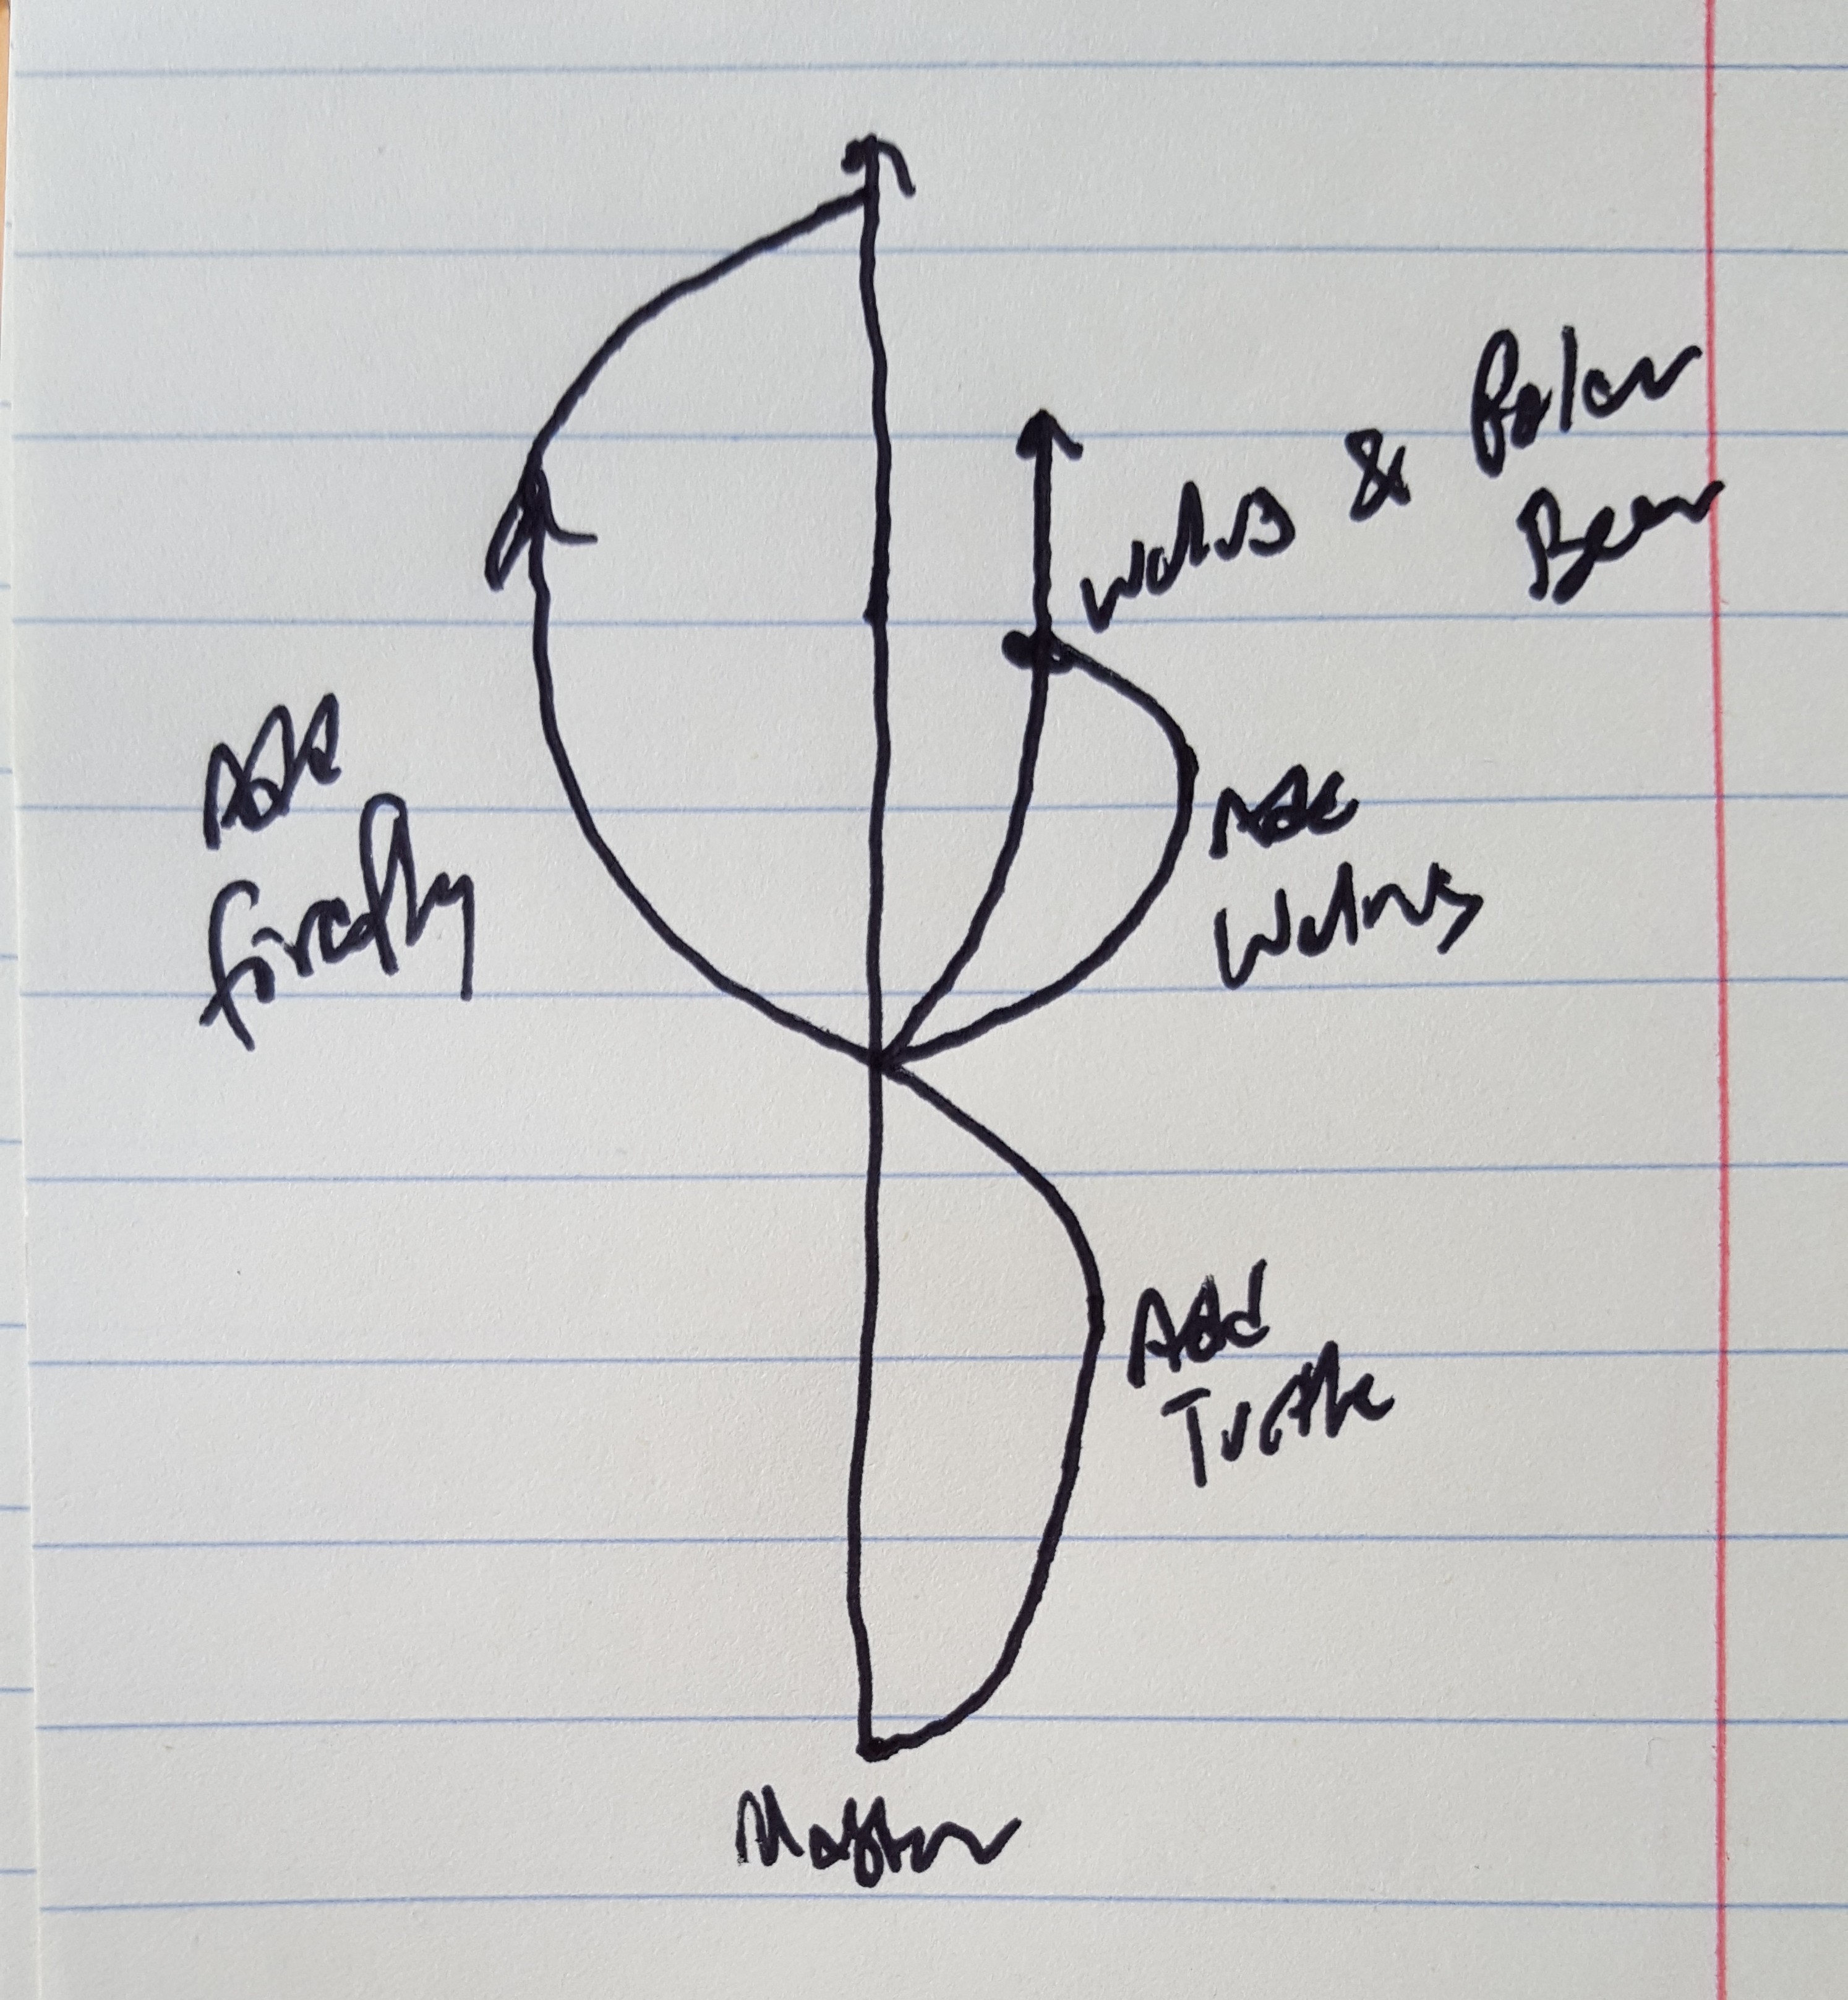 Walrus & Polar
Bear
Add
firefly
Add
Walrus
Add
Turtle
Master